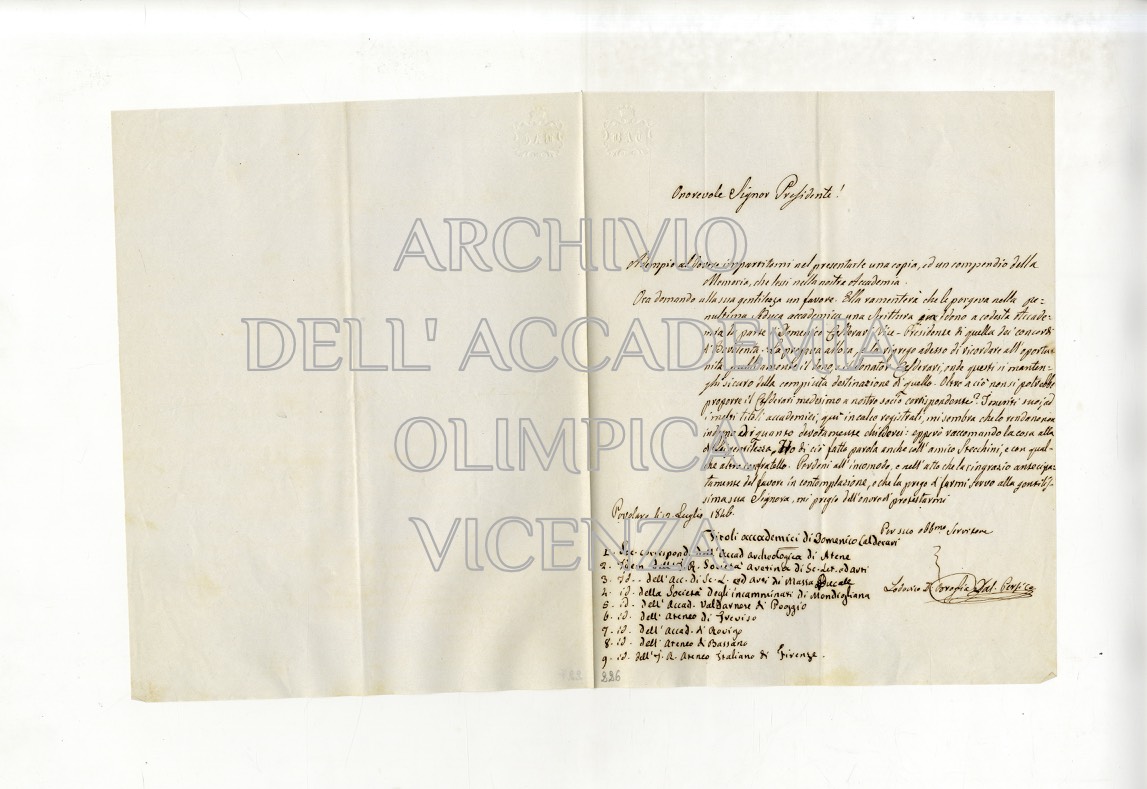 Onorevole Signor Presidente!
ARCHIVIO
DELL' ACCADEMIA
OLIMPICA
VICENZA
Adempio al dovere impartitomi nel presentarle una copia, ed un compendio della
Memoria, che lessi nella nostra Accademia.
Ora domando alla sua gentilezza un favore. Ella ramenterà che le porgeva nella pe-
nultima seduta accademica una Scrittura in dono a codesta Accade-
mia da parte di Domenico Calderari Vice-Presidente di quella dei concordi
di Bovolenta. La pregava allora, e la riprego adesso di ricordare all'opportu-
nità il dono, e il donatore Calderari, onde questi si manten-
ghi sicuro della compiuta destinazione di quello. Oltre a ciò non si potrebbe
proporre il Calderari medesimo a nostro socio corrispondente? I meriti suoi, ed
i molti titoli accademici, qui in calce registrati, mi sembra che lo rendono non
indegno di quanto devotamente chiederei: epperò raccomando la cosa alla
di lei gentilezza. Ho di ciò fatto parola anche coll'amico Stecchini, e con qual-
che altro confratello. Perdoni all'incomodo, e nell'atto che la ringrazio anticipa-
tamente del favore in contemplazione, e che la prego di farmi servo alla gentilis-
sima sua Signora, mi pregio dell'onore di protestarmi
Povolaro li 12 Luglio 1846.
Per suo obb.mo Servitore
Titoli accademici di Domenico Calderari
1. Soc. corrispond. dell'Accad archeologica di Atene
2. Idem dell'I. R. Società aretina di Sc. Let. ed arti
3. Id.. dell'Acc. di Sc. L. ed arti di Massa Ducale
4. id. della Società degli incamminati di Mondigliana
5. id. dell'Accad. Valdarnese di Poggio
6. id. dell'Ateneo di Treviso
7. id. dell'Accad. di Rovigo
8. id. dell'Ateneo di Bassano
9. id. dell'I. R. Ateneo Italiano di Firenze.
Lodovico Dal Pertico
226